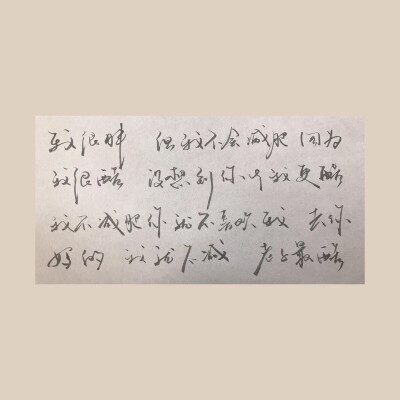 我很胖 但我不会减肥 因为
我很酷 没想到你比我更酷
我不减肥你就不喜欢我 去你
妈的 我就不减 老子最酷